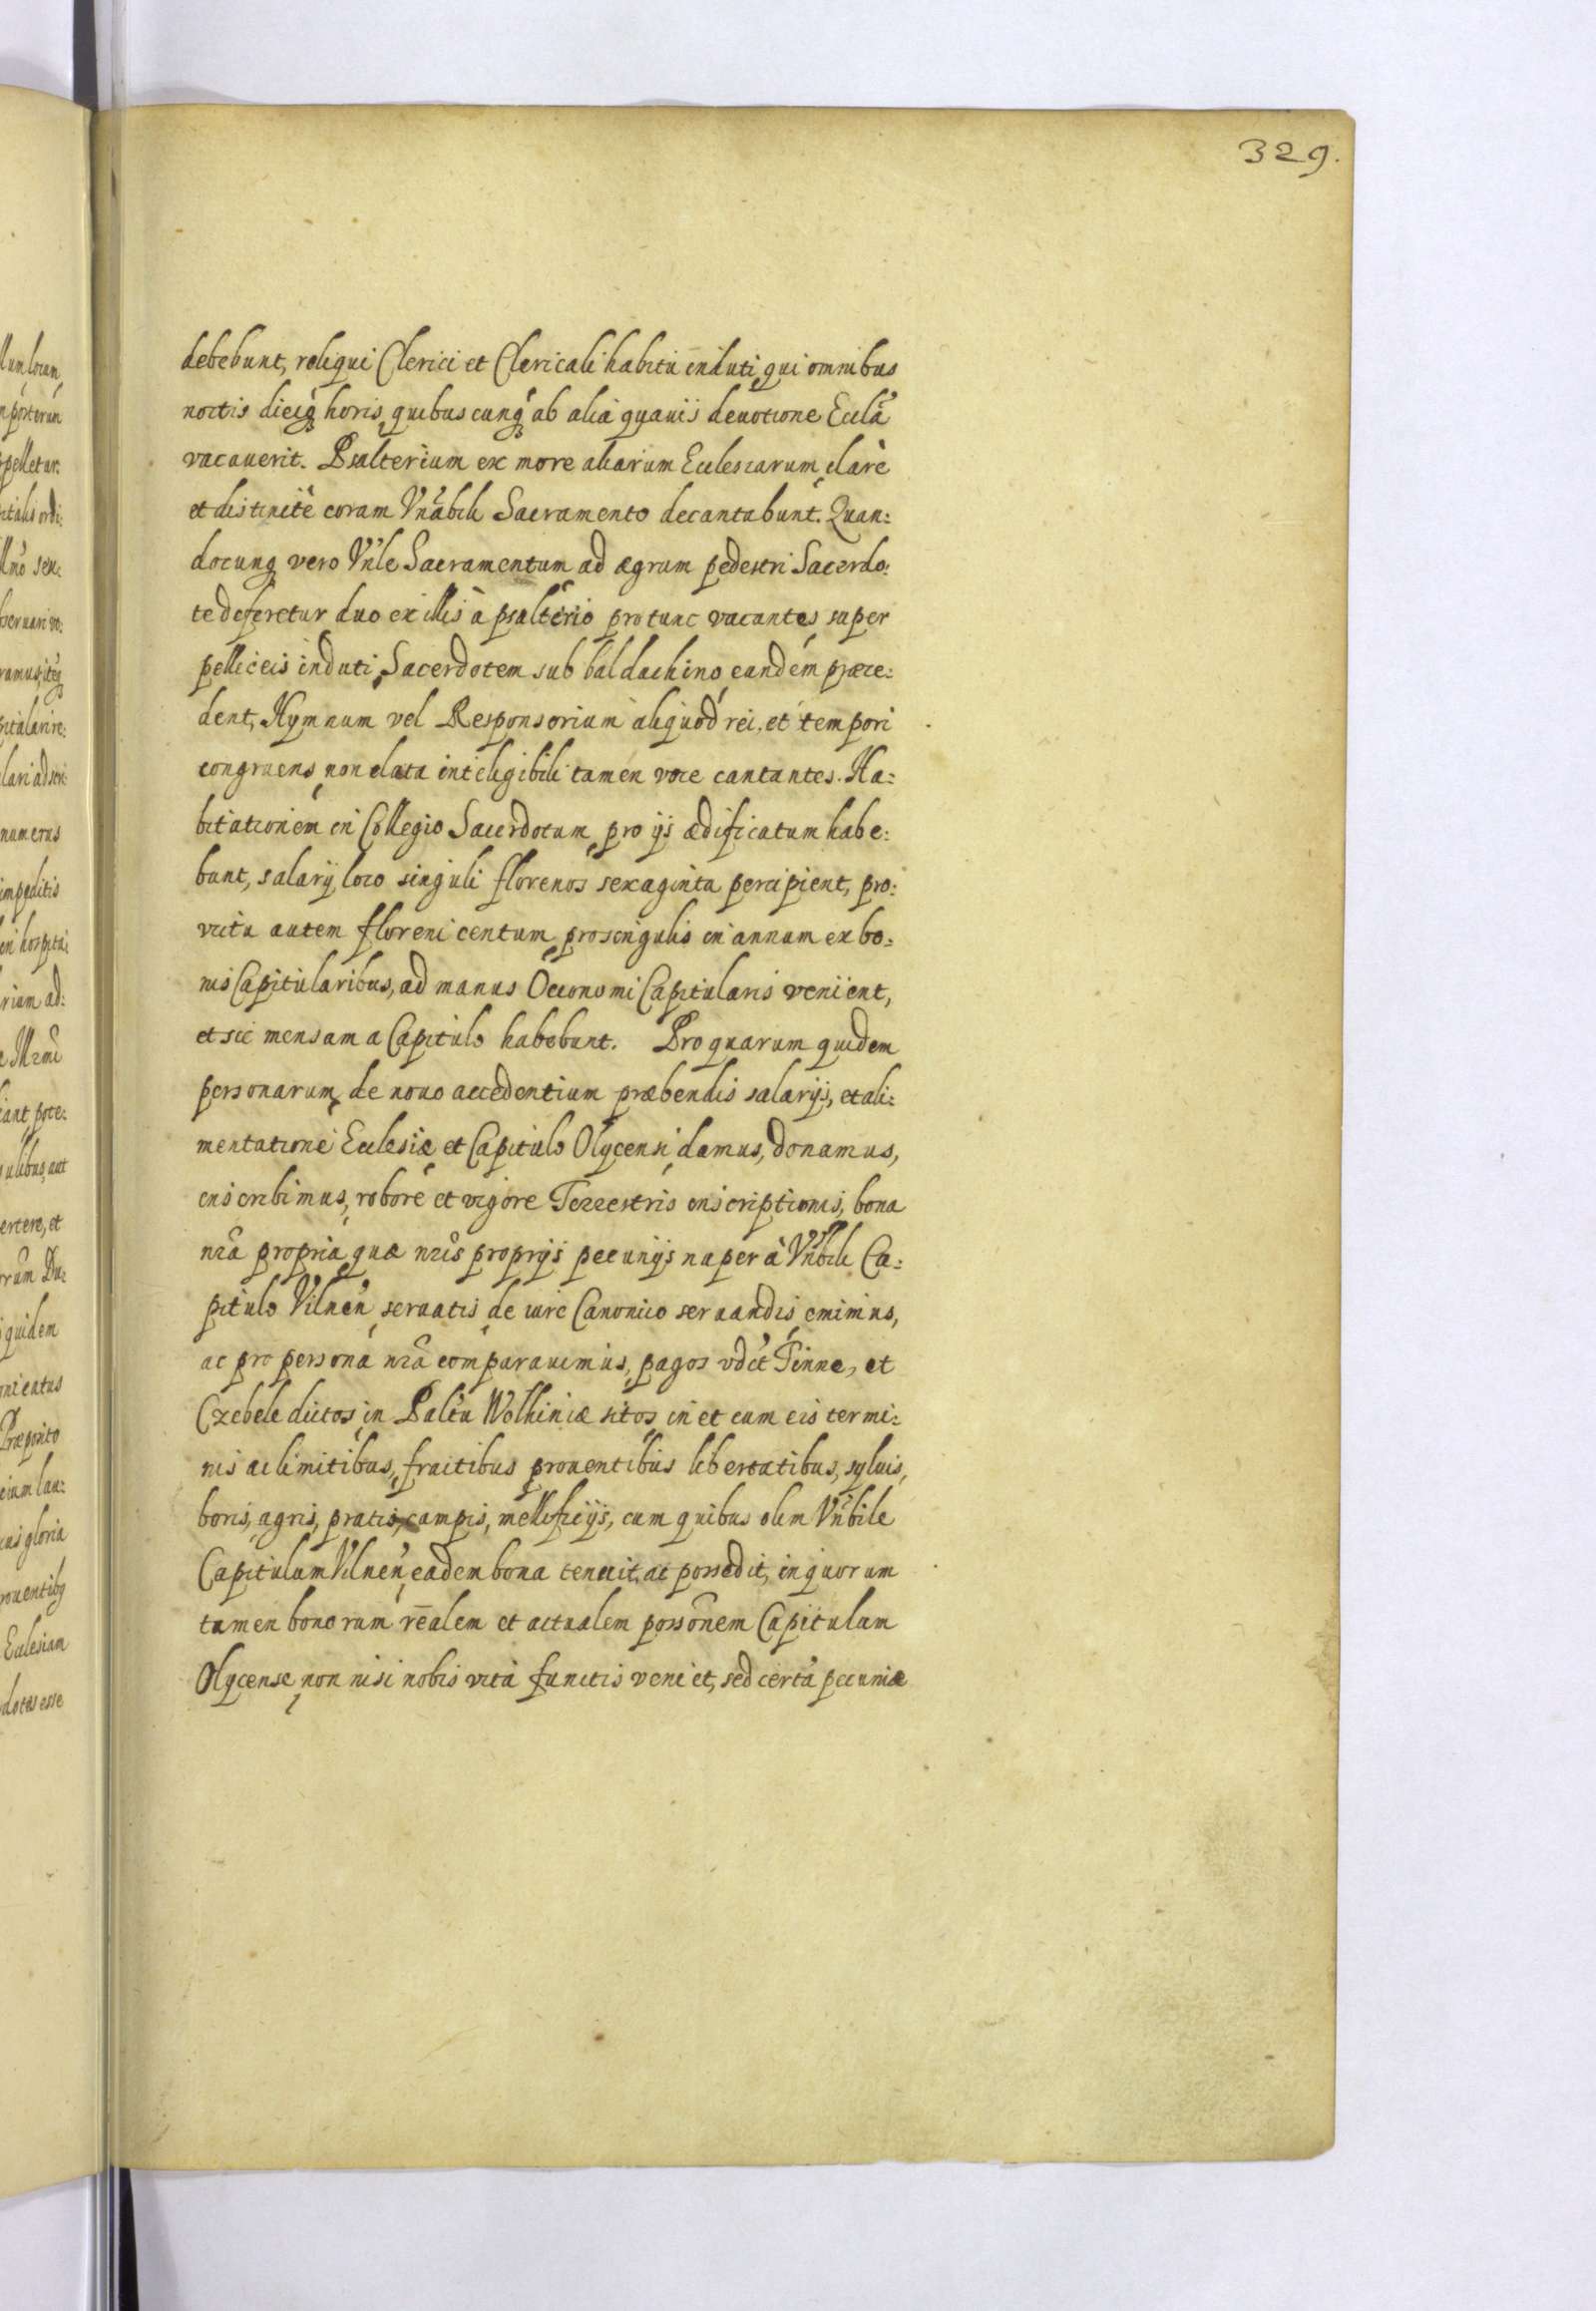 329.
debebunt, reliqui Clerici et Clericali habitu induti, qui omnibus
noctis dieiq́ horis, quibuscunq́ ab alia quauis deuotione Eccla
vacauerit. Psalterium ex more aliarum Ecclesiarum, clarè
et distinctè coram Vnabili Sacramento decantabunt. Quan:
docunq vero Vnle Sacramentum ad ægrum pedestri Sacerdo:
te deferetur duo ex illis à psalterio pro tunc vacantes, super
pelliceis induti, Sacerdotem sub baldachino, eundem præce:
dent, Hymnum vel Responsorium aliquod rei, et tempori
congruens, non elata inteligibili tamen voce cantantes. Ha:
bitationem in Collegio Sacerdotum, pro ijs ædificatum habe:
bunt, salarij loco singuli florenos sexaginta percipient, pro:
victu autem floreni centum, pro singulis in annum ex bo:
nis Capitularibus, ad manus Oeconomi Capitularis venient,
et sic mensam a Capitulo habebunt. Pro quarum quidem
personarum, de nouo accedentium præbendis salarijs, et ali:
mentatione Ecclesiæ et Capitulo Olycensi, damus, donamus,
inscribimus, robore et vigore Terrestris inscriptionis, bona
nrã propria, quæ nris proprijs pecunijs nuper à Vnbili Ca:
pitulo Vilneñ, seruatis, de iure Canonico seruandis, emimus,
ac pro persona nrã comparauimus, pagos vdct Tinne, et
Czebele dictos, in Paltu Wolhiniæ sitos, in et cum eis termi:
nis ac limitibus, fructibus prouentibus libertatibus, syluis,
boris, agris, pratis, campis, mellificijs, cum quibus olim Vnbile
Capitulum Vilneñ, eadem bona tenuit, ac possedit, in quorum
tamen bonorum rēalem et actualem possonem Capitulum
Olycense, non nisi nobis vità functis veniet, sed certa pecuniæ